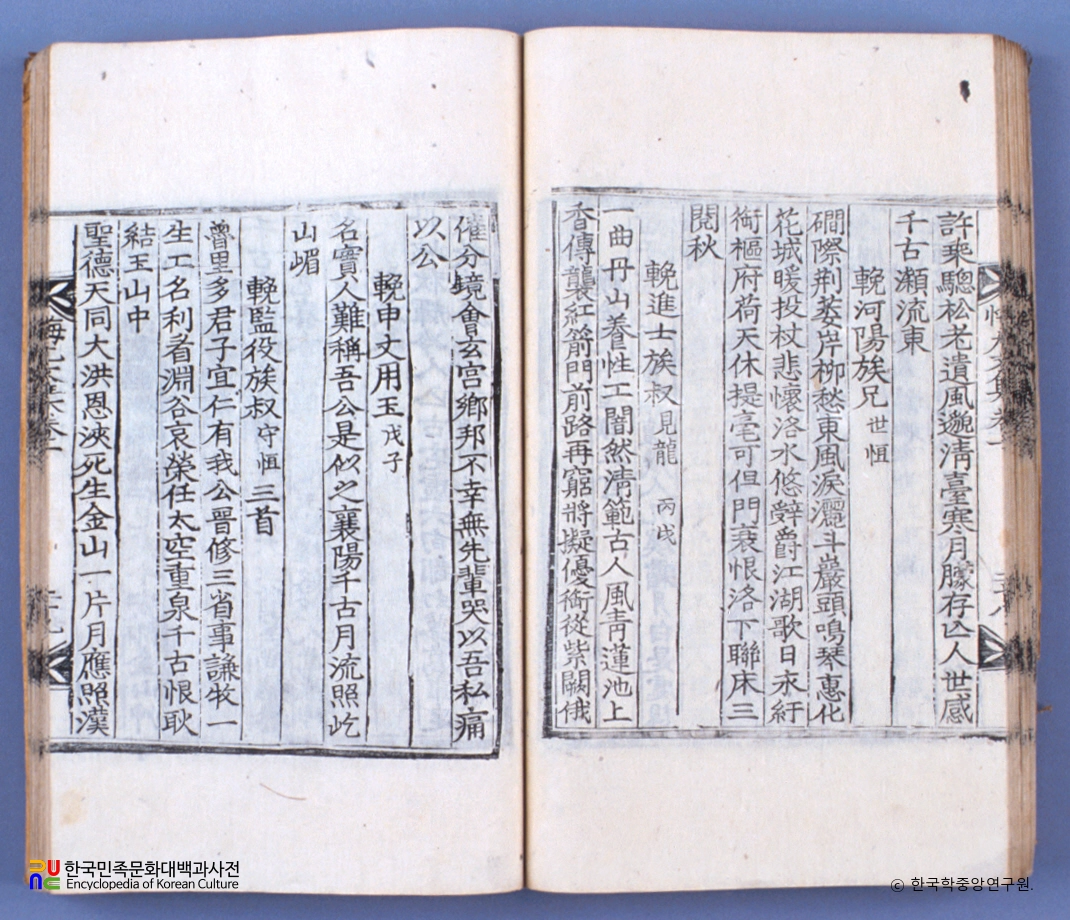 許乘驄松老遺風邈淸臺寒月朦存亾人世感
千古瀨流東
輓河陽族兄世恒
磵際荆萎岸柳愁東風淚灑斗巖頭鳴琴惠化
花城暖投杖悲懷洛水悠辭爵江湖歌日永紆
銜樞府荷天休提毫可但門衰恨洛下聯床三
閱秋
輓進士族叔見龍 丙戌
一曲丹山養性工闇然淸範古人風靑蓮池上
香傳襲紅箭門前路再窮將擬優銜從紫闕俄
催分鏡會玄宮鄕邦不幸無先輩哭以吾私痛
以公
輓申丈用玉戊子
名實人難稱吾公是似之襄陽千古月流照屹
山嵋
輓監役族叔守恒三首
魯里多君子宜仁有我公晋修三省事謙牧一
生工名利者淵谷哀榮任太空重泉千古恨耿
結玉山中
聖德天同大洪恩浹死生金山一片月應照漢
한국민족문화대백과사전
Encyclopedia of Korean Culture
© 한국학중앙연구원.